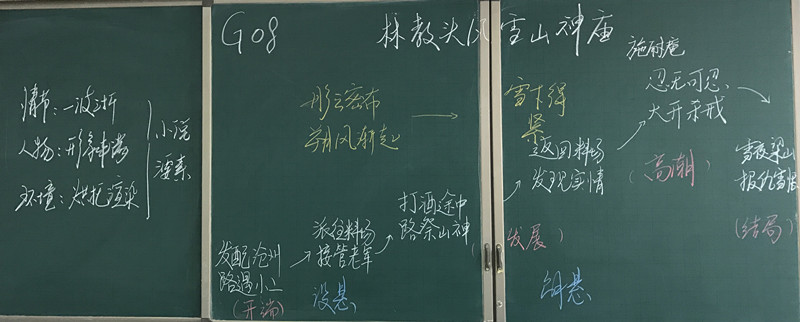 情节：一波三折
人物：形象
环境：烘托渲染
小说
要素
G08
林教头风雪山神庙
施耐庵
彤云密布
朔风渐起
雪下得
紧
发配沧州
路遇小二
(开端)
派往料场
接管老军
设悬
打酒途中
路祭山神
返回料场
发现实情
(发展)
忍无可忍
大开杀戒
(高潮)
雪夜梁山
报仇雪恨
(结局)